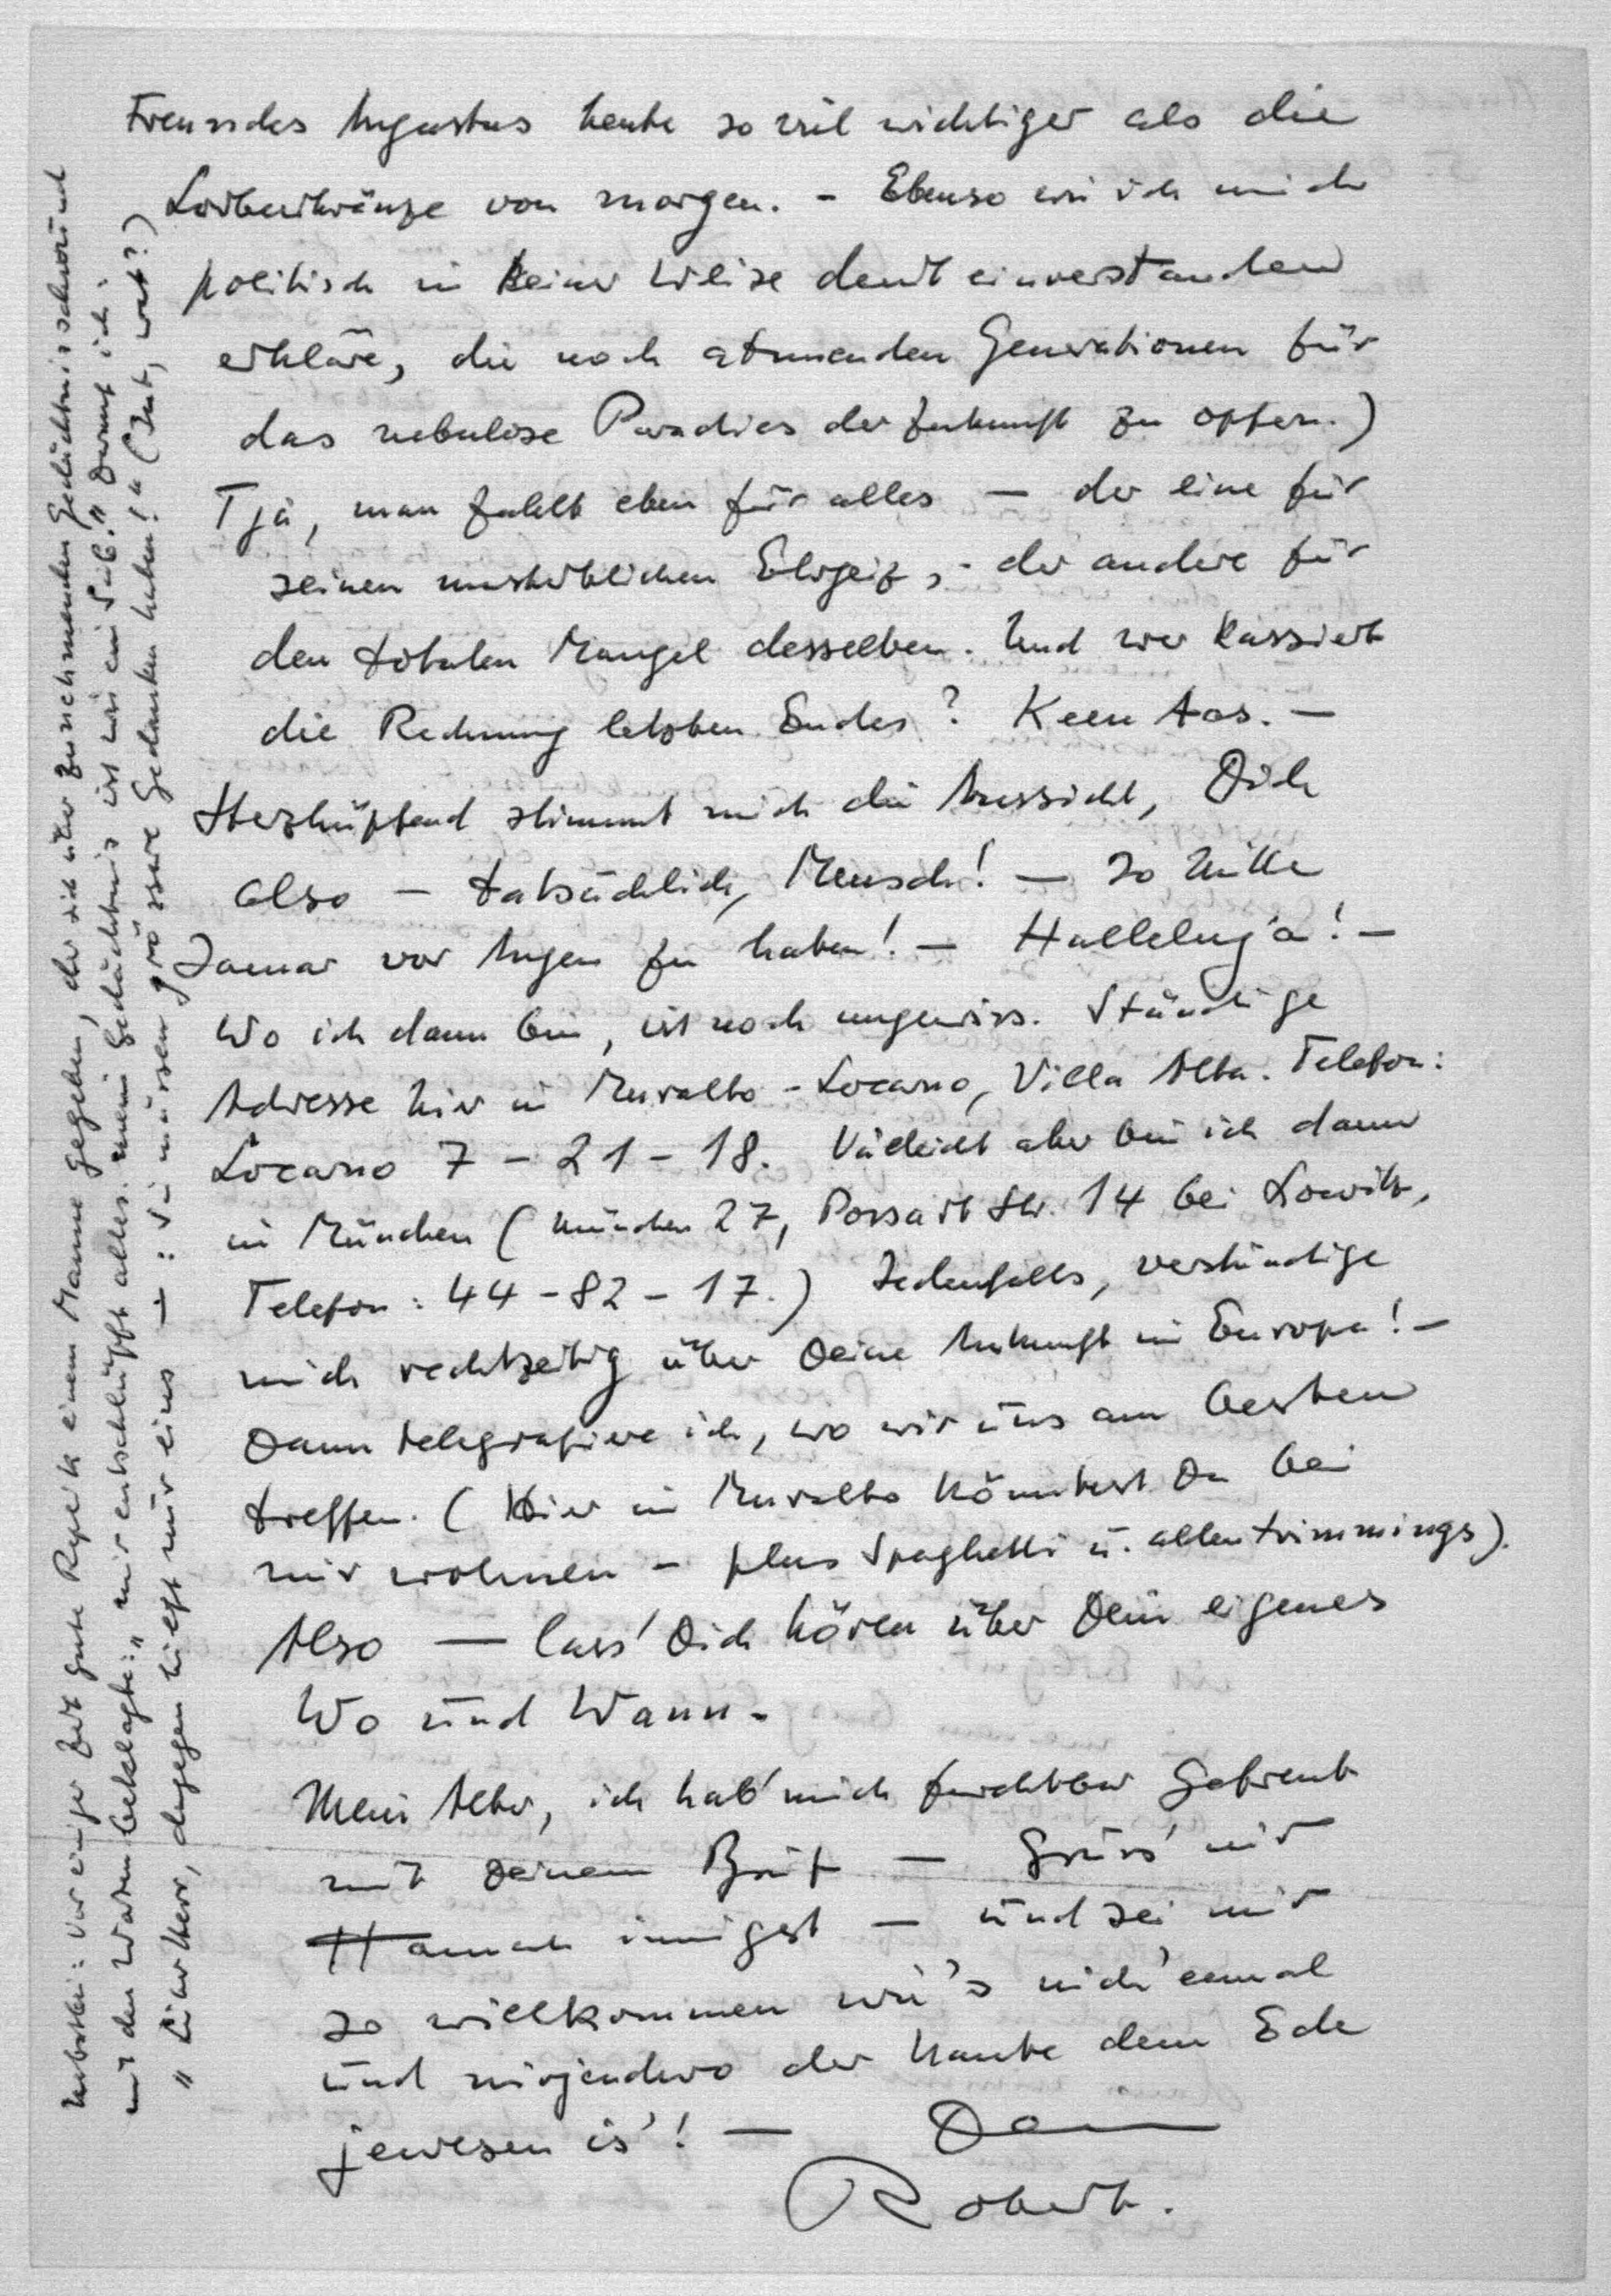 Freundes Augustus heute so viel wichtiger als die
Lorbeerkränze von morgen. - Ebenso wie ich mich
politisch in keiner Weise damit einverstanden
erkläre, die noch atmenden Generationen für
das nebulose Paradies der Zukunft zu opfern.)
Tja, man zahlt eben für alles — der eine für
seinen unsterblichen Ehrgeiz, - der andere für
den totalen Mangel desselben. Und wer kassiert
die Rechnung letzten Endes? Keen Aas. —
Herzhüpfend stimmt mich die Aussicht, Dich
also — tatsächlich, Mensch! — so Mitte
Januar vor Augen zu haben! — Halleluja! —
Wo ich dann bin, ist noch ungewiss. Ständige
Adresse hier in Muralto - Locarno, Villa Alta. Telefon:
Locarno 7 - 21 - 18. Vielleicht aber bin ich dann
in München (München 27, Possart Str. 14 bei Lowitz,
Telefon: 44 - 82 - 17.) Jedenfalls, verständige
mich rechtzeitig über Deine Ankunft in Europa! —
Dann telegrafiere ich, wo wir uns am besten
treffen. (Hier in Muralto könntest Du bei
mir wohnen - plus Spaghetti u. allen trimmings).
Also — lass' Dich hören über Dein eigenes
Wo und Wann.
Mein Alter, ich hab' mich furchtbar gefreut
mit Deinem Brief — Grüss' mir
Hannah innigst — und sei mir
so willkommen wie's nich' eenmal
und nirjendwo der Kante dem Ede
jewesen is'! — Dein
Robert.
Nebstbei: Vor einiger Zeit gute Replik einem Manne gegeben, der sich über zunehmenden Gedächtnisschwund
mit den Worten beklagte: "mir entschlüpft alles. Mein Gedächtnis ist wie ein Sieb." Darauf ich:
"Lieber Herr, dagegen hilft nur eins — : Sie müssen grössere Gedanken haben!" (Jut, wat?)